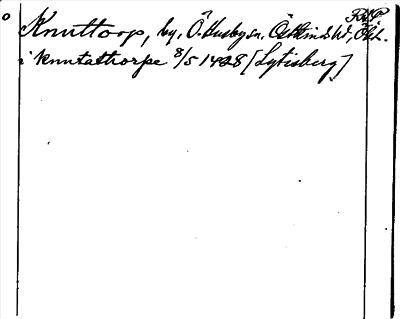 RAP
Knuttorp, by, Ö. Husby sn. Östkinds hd, Ögl.
i knutathorpe 8/5 1428 [Lytisberg]